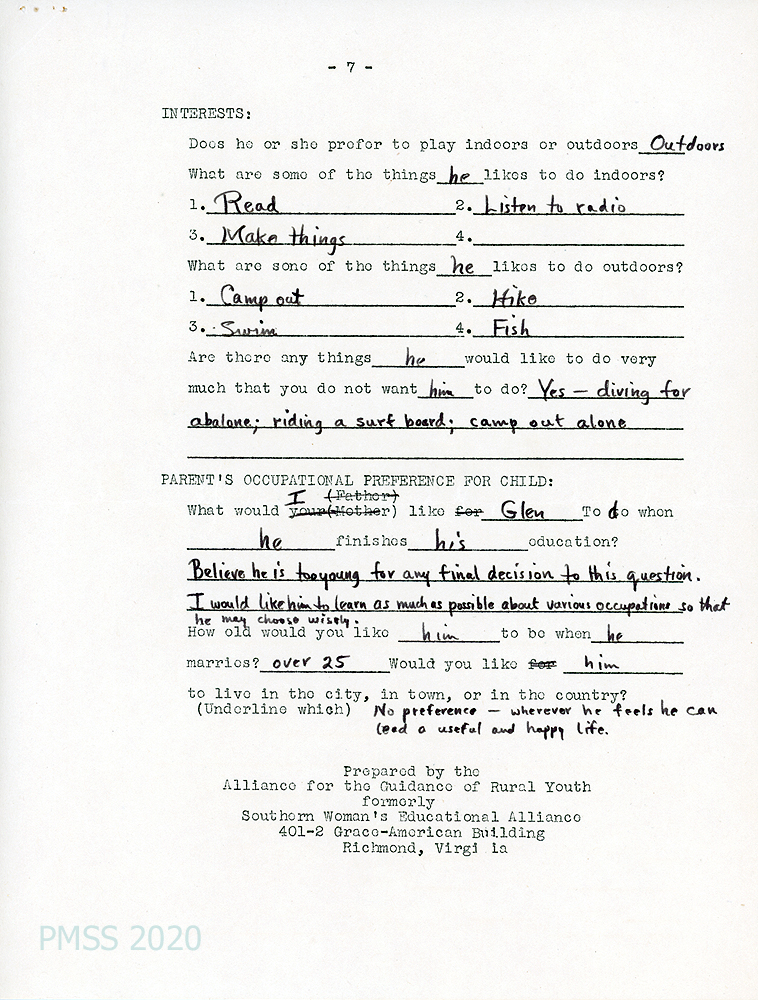 - 7 -
INTERESTS:
Does he or she prefer to play indoors or outdoors Outdoors
What are some of the things he likes to do indoors?
1. Read 2. Listen to radio
3. Make things 4.
What are some of the things he likes to do outdoors?
1. Camp out 2. Hike
3. Swim 4. Fish
Are there any things he would like to do very
much that you do not want him to do? Yes — diving for
abalone; riding a surf board; camp out alone
PARENT'S OCCUPATIONAL PREFERENCE FOR CHILD:
I (Father)
What would your (Mother) like for Glen To do when
he finishes his education?
Believe he is too young for any final decision to this question.
I would like him to learn as much as possible about various occupations so that
he may choose wisely.
How old would you like him to be when he
marries? over 25 Would you like for him
to live in the city, in town, or in the country?
(Underline which) No preference — wherever he feels he can
lead a useful and happy life.
Prepared by the
Alliance for the Guidance of Rural Youth
formerly
Southern Woman's Educational Alliance
401-2 Grace-American Building
Richmond, Virgi ia
PMSS 2020